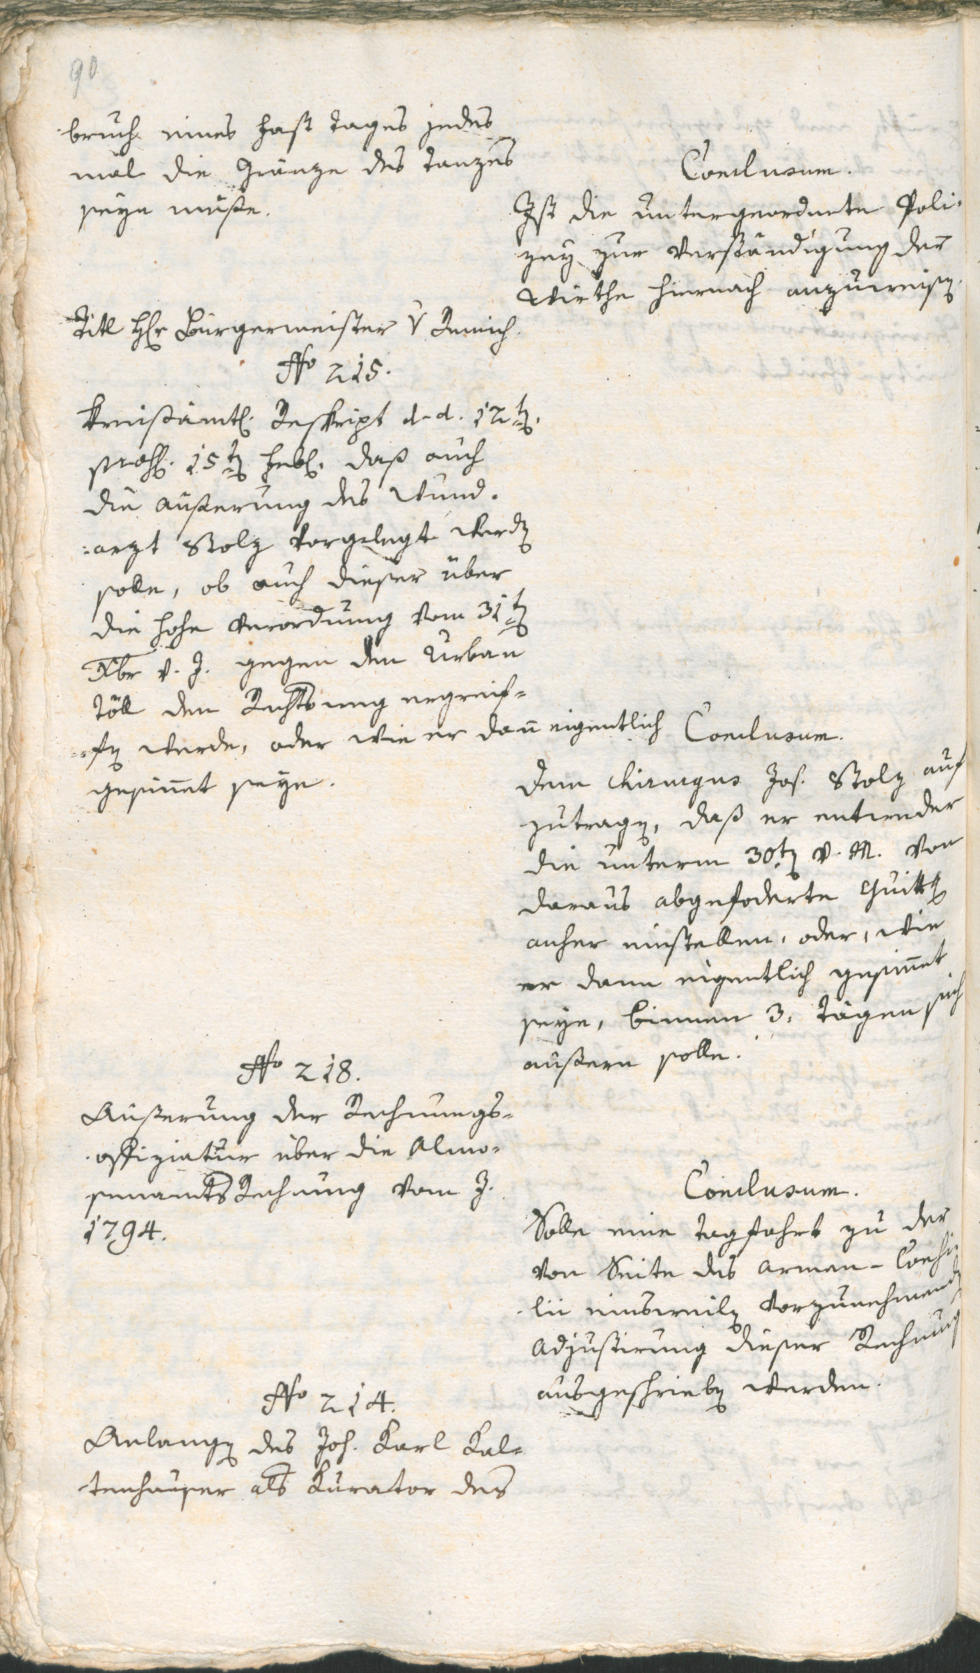 90
bruch eines Fast tages jedes
mal die Gränze des Tanzes
seyn müsse.
Conclusum.
Ist die untergeordnete Poli-
zey zur Verständigung der
Wirthe hiernach anzuweisen.
Titl Hr Bürgermeister v
No 215.
Kreisämtl. Reskript d. d. 12ten
15ten Febr. daß auch
die äusserung des Wund-
arzt Stolz vorgelegt werden
solle, ob auch dieser über
die hohe Verordnung vom 31ten
Xbr v. J. gegen den Urban
Töll den Rechtsweg ergreif-
fen werde, oder wie er dann eigentlich
gesinnet seye.
Conclusum.
Dem Chirurgus Jos. Stolz auf
zutragen, daß er entweder
die unterm 30ten v. M. von
daraus abgefoderte Quittg
anher einstellen, oder, wie
er dann eigentlich gesinnet
seye, binnen 3. Tägen sich
äussern solle.
No 218.
Äusserung der Rechnungs-
offiziatur über die Almo-
senamts Rechnung vom J.
1794.
Conclusum.
Solle eine Tagfahrt zu der
von Seite des Armen-Consi-
lii einsweilen vorzunehmenden
Adjustirung dieser Rechnung
ausgeschrieben werden.
No 214.
Anlangen des Joh. Karl Kal-
tenhauser als Kurator des